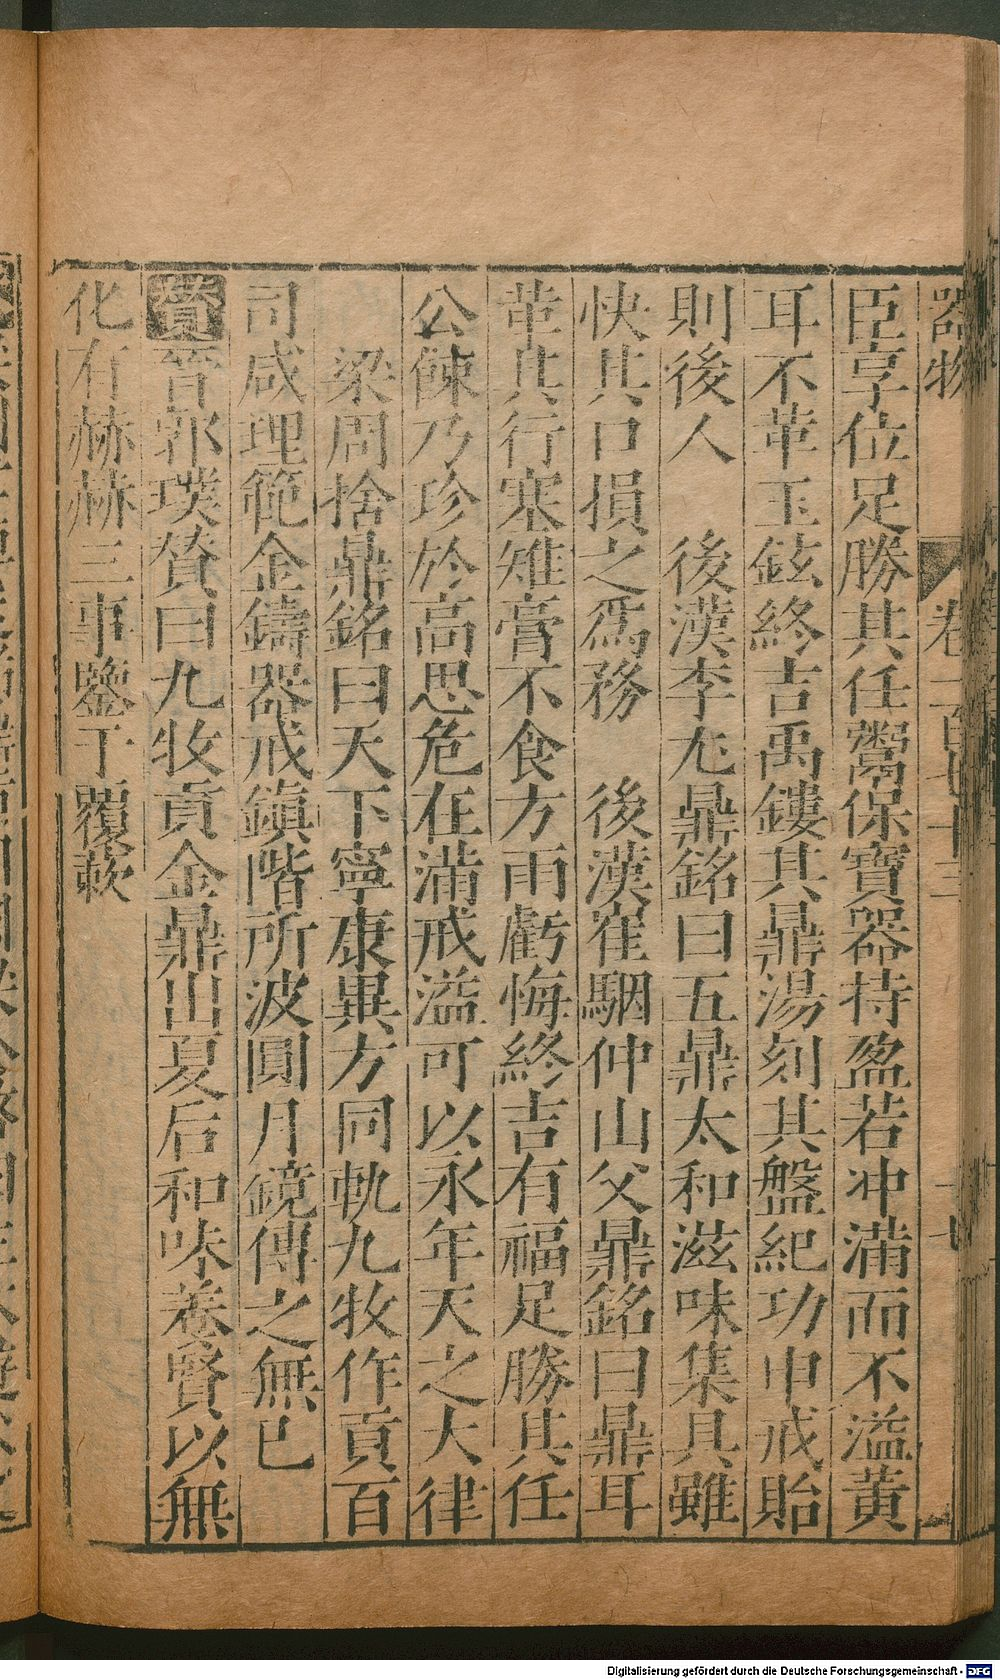 器物　卷一百七十三　十七
臣享位足勝其任鬻保寶器持盈若冲滿而不溢黃
耳不革玉鉉終吉禹鏤其鼎湯刻其盤紀功申戒貽
則後人　後漢李尤鼎銘曰五鼎太和滋味集具雖
快其口損之爲務　後漢崔駰仲山父鼎銘曰鼎耳
革其行塞雉膏不食方雨虧悔終吉有福足勝其任
公餗乃珍於高思危在滿戒溢可以永年天之大律
梁周捨鼎銘曰天下寧康異方同軌九牧作貢百
司咸理範金鑄器戒鎮階所波圓月鏡傳之無已
贊晉郭璞贊曰九牧貢金鼎出夏后和味養賢以無
化有赫赫三事鑒于覆蔌
Digitalisierung gefördert durch die Deutsche Forschungsgemeinschaft - DFG